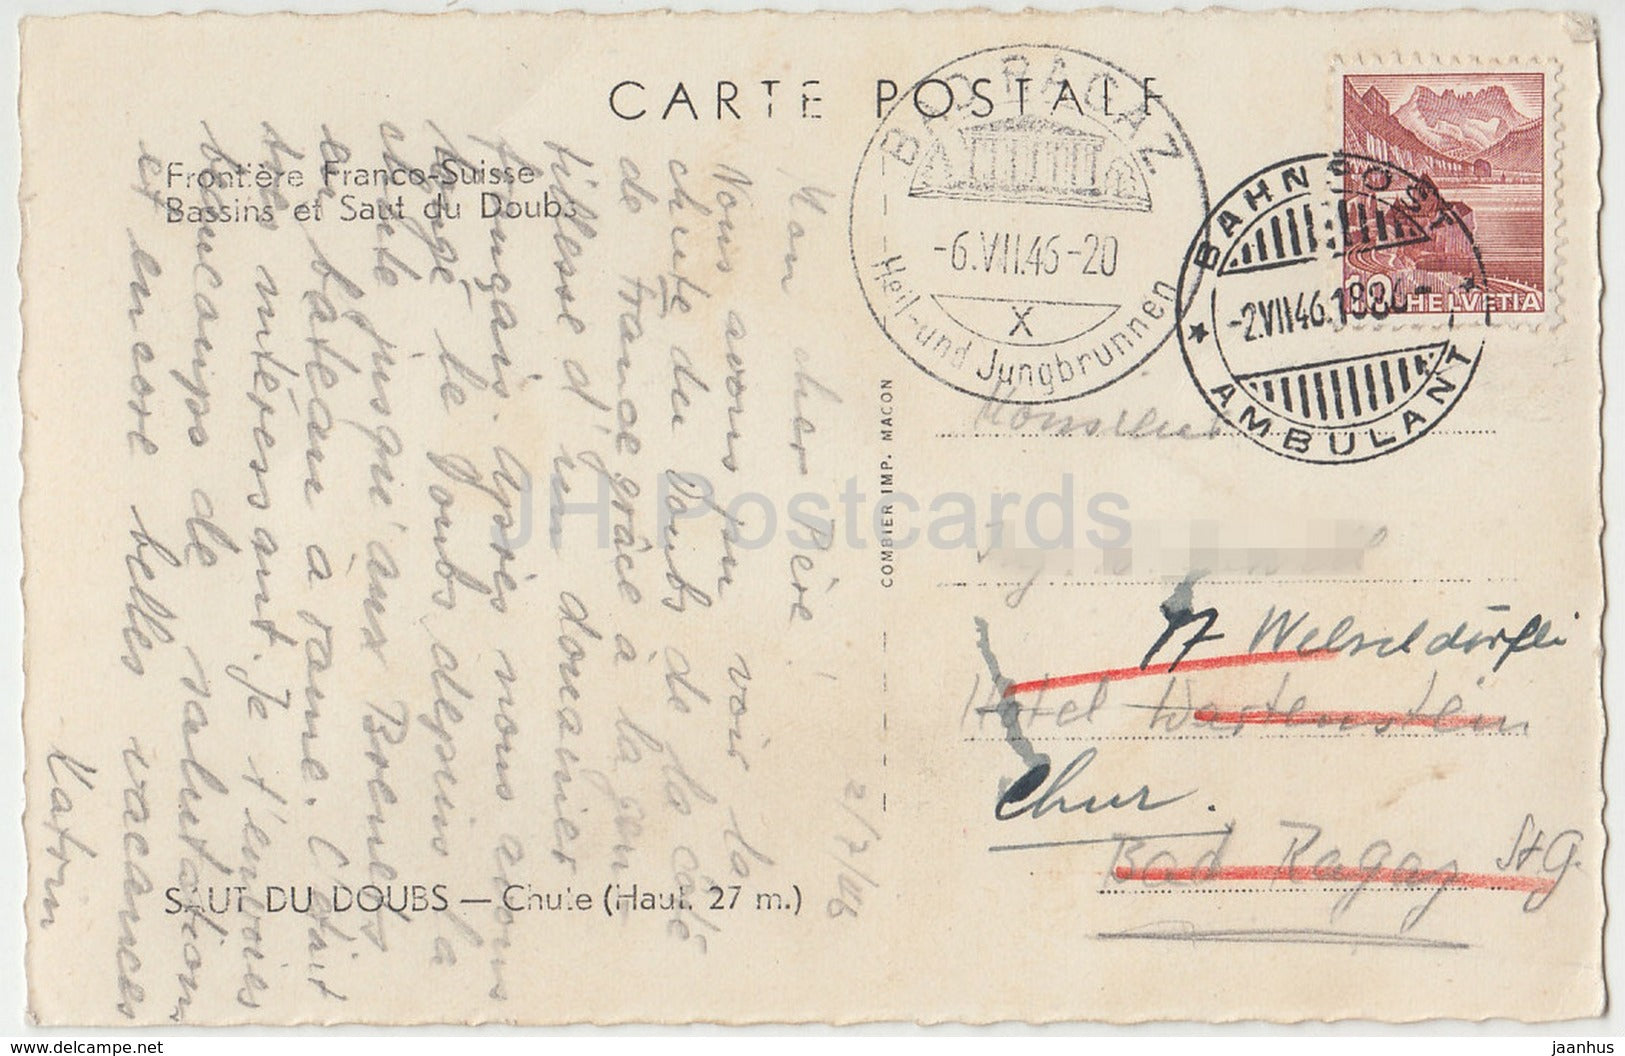 CARTE POSTALE
Frontière Franco-Suisse
Bassins et Saut du Doubs
SAUT DU DOUBS — Chute (Haut. 27 m.)
COMBIER IMP. MACON
2/7/46
Mon cher Père!
Nous avons pu voir la
chute du Doubs de la côté
de France grâce à la gen-
tillesse d'un douanier
français. Après nous avons
longé le Doubs depuis la
chute jusqu'aux Brenets
en bateau à rame. C'était
très intéressant. Je t'envoies
beaucoups de salutations
et encore belles vacances
Katrin
BAD RAGAZ
-6.VII.46-20
X
Heil- und Jungbrunnen
BAHNPOST
-2.VII 46.1886-
AMBULANT
10 HELVETIA
Monsieur
17 Welschdörfli
Hotel Wartenstein
Chur.
Bad Ragaz St G.
JH Postcards
delcampe.net
jaanhus